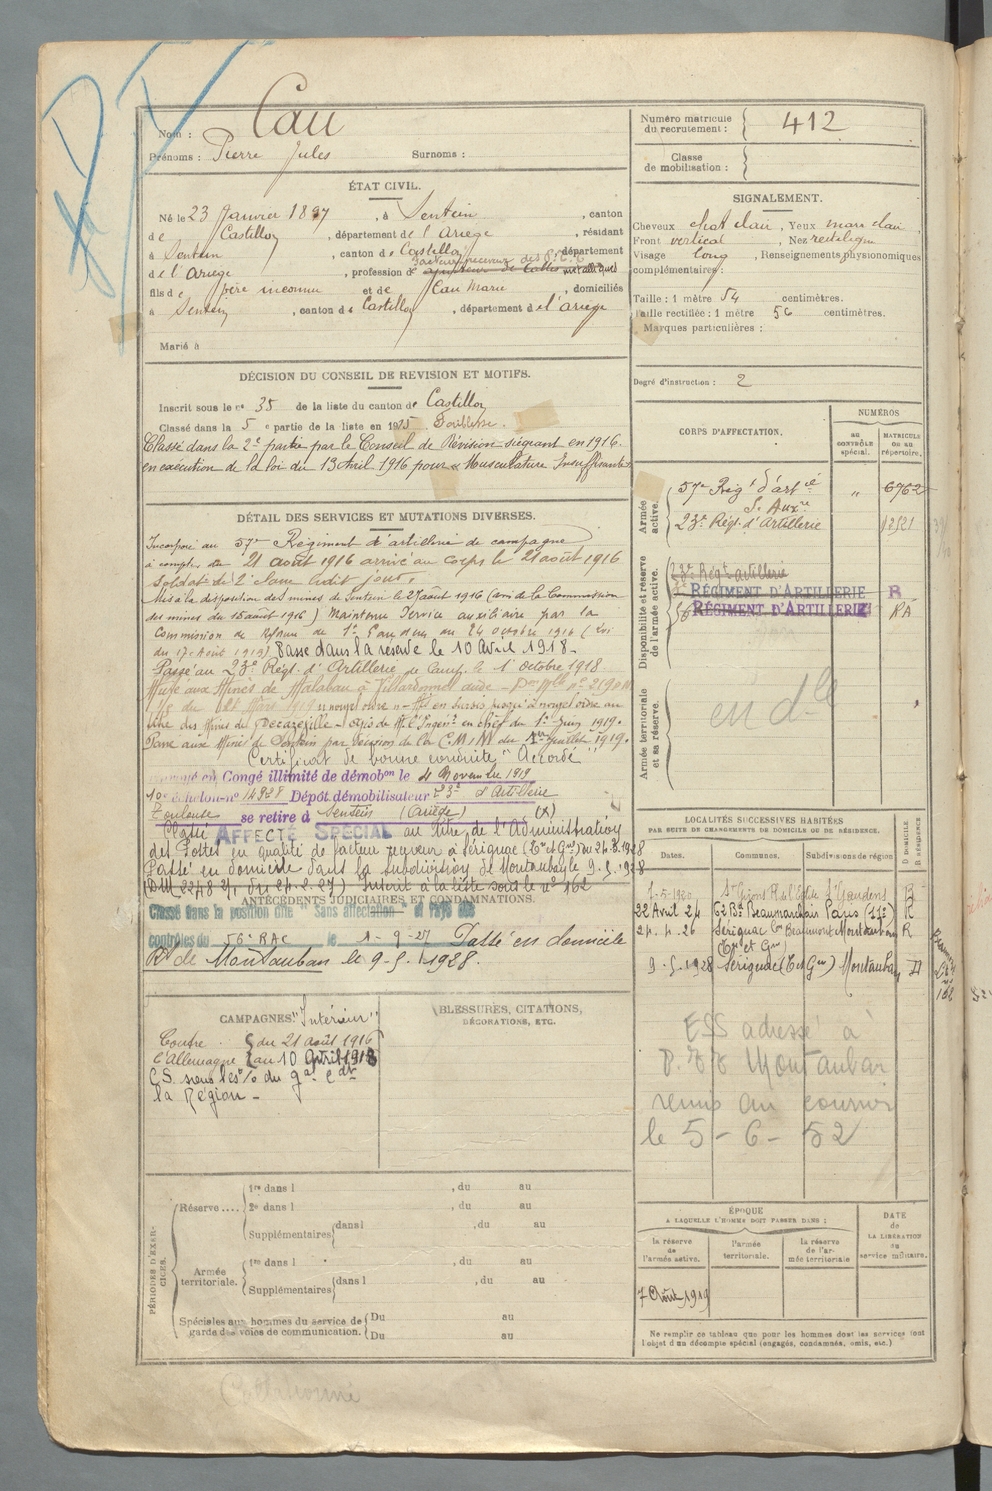 Nom : Cau
Prénoms : Pierre Jules Surnoms :
Numéro matricule du recrutement : 412
Classe de mobilisation :
ÉTAT CIVIL.
Né le 23 Janvier 1897, à Sentein, canton
de Castillon, département de l'Ariège, résidant
à Sentein, canton de Castillon, département
facteur receveur des P.T.T.
de l'Ariège, profession de ajusteur de câbles métalliques
fils de père inconnu et de Cau Marie, domiciliés
à Sentein, canton de Castillon, département de l'ariège
Marié à
SIGNALEMENT.
Cheveux chat clair, Yeux mar clair
Front vertical, Nez rectiligne
Visage long, Renseignements physionomiques
complémentaires :
Taille : 1 mètre 54 centimètres.
Taille rectifiée : 1 mètre 56 centimètres.
Marques particulières :
Degré d'instruction : 2
DÉCISION DU CONSEIL DE REVISION ET MOTIFS.
Inscrit sous le n° 35 de la liste du canton de Castillon
Classé dans la 5e partie de la liste en 1915. Faiblesse.
Classé dans la 2e partie par le Conseil de Révision siégeant en 1916.
en exécution de la loi du 13 Avril 1916 pour "Musculature Insuffisante"
CORPS D'AFFECTATION.
NUMÉROS
AU CONTRÔLE spécial.
MATRICULE OU AU répertoire.
Armée active.
57e Régt d'artie " 6762
S. Auxre
23e Régt d'Artillerie 12521
Disponibilité et réserve de l'armée active.
23e Régt artillerie
RÉGIMENT D'ARTILLERIE R
RÉGIMENT D'ARTILLERIE RA
Armée territoriale et sa réserve.
en dlle
DÉTAIL DES SERVICES ET MUTATIONS DIVERSES.
Incorporé au 57e Régiment d'artillerie de campagne
à compter du 21 août 1916 arrivé au corps le 21 août 1916
Soldat de 2e classe ledit jour.
Mis à la disposition des mines de Sentein le 27 août 1916 (avis de la Commission
des mines du 15 août 1916) Maintenu Service auxiliaire par la
Commission de Réforme de St Gaudens du 24 octobre 1916 (Loi
du 17 Août 1915) Passé dans la réserve le 10 Avril 1918.
Passé au 23e Régt d'Artillerie de Camp. le 1 octobre 1918.
Muté aux Mines de Malabau à Villardonnel aude
en sursis jusqu'à nouvel ordre au
titre des Mines de Decazeville. avis de Mr l'Ingenr en chef du 1er Juin 1919.
Passé aux Mines de Sentein par décision de la C.M.M du 1er juillet 1919.
Certificat de bonne conduite "Accordé"
en Congé illimité de démobon le 4 Novembre 1919
10e échelon n° 14928 Dépôt démobilisateur 23e d'Artillerie
Toulouse se retire à Sentein (Ariège) (X)
Classé AFFECTÉ SPÉCIAL au titre de l'Administration
des Postes en qualité de facteur receveur à Sérignac (Tn et Gne) du 24.3.1928
Passé en domicile dans la subdivision de Montauban le 9.5.1928
(DM 2248 2/1 du 24.2.27) Inscrit à la liste sous le n° 162
ANTÉCÉDENTS JUDICIAIRES ET CONDAMNATIONS.
Classé dans la position dite "Sans affectation" et rayé des
contrôles du 56e RAC le 1-9-27 Passé en domicile
Rt de Montauban le 9-5-1928.
LOCALITÉS SUCCESSIVES HABITÉES
PAR SUITE DE CHANGEMENTS DE DOMICILE OU DE RÉSIDENCE.
Dates. Communes. Subdivisions de région D DOMICILE R RÉSIDENCE
1-5-1920 St Girons R de l'Eglise St Gaudens R
22 Avril 24 62 Bd Beaumarchais Paris (11e) R
24.4.26 Sérignac Con Beaumont Montauban R
(Tn et Gne)
9.5.1928 Sérignac (T et Gne) Montauban D
ESS adressé à
P.T.T Montauban
remis au courrier
le 5-6-52
CAMPAGNES. "Intérieur"
Contre { du 21 août 1916
l'Allemagne { au 10 Avril 1918
la Région -
BLESSURES, CITATIONS,
DÉCORATIONS, ETC.
PÉRIODES D'EXERCICES.
Réserve....
1re dans l , du au
2e dans l , du au
Supplémentaires dans l , du au
Armée territoriale.
1re dans l , du au
Supplémentaires dans l , du au
Spéciales aux hommes du service de garde des voies de communication.
Du au
Du au
ÉPOQUE
A LAQUELLE L'HOMME DOIT PASSER DANS :
la réserve de l'armée active.
l'armée territoriale.
la réserve de l'armée territoriale
DATE de LA LIBÉRATION du service militaire.
7 Août 1919
Ne remplir ce tableau que pour les hommes dont les services font
l'objet d'un décompte spécial (engagés, condamnés, omis, etc.)